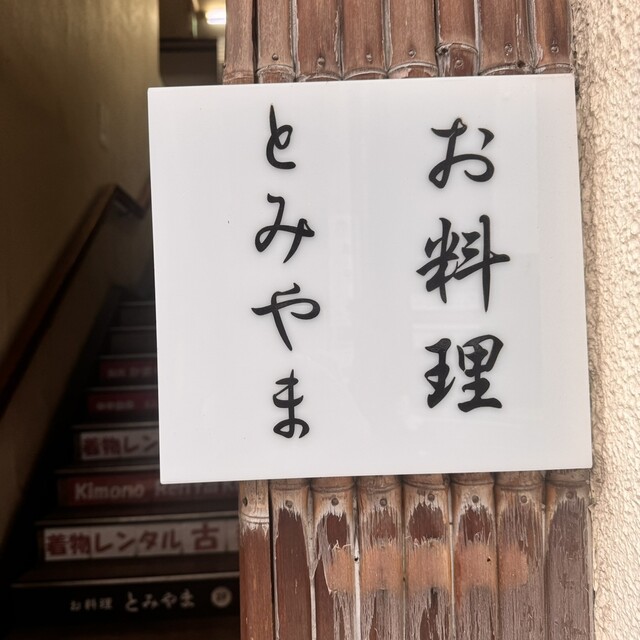 お料理
とみやま
着物レンタル
Kimono
着物レンタル 古
お料理 とみやま